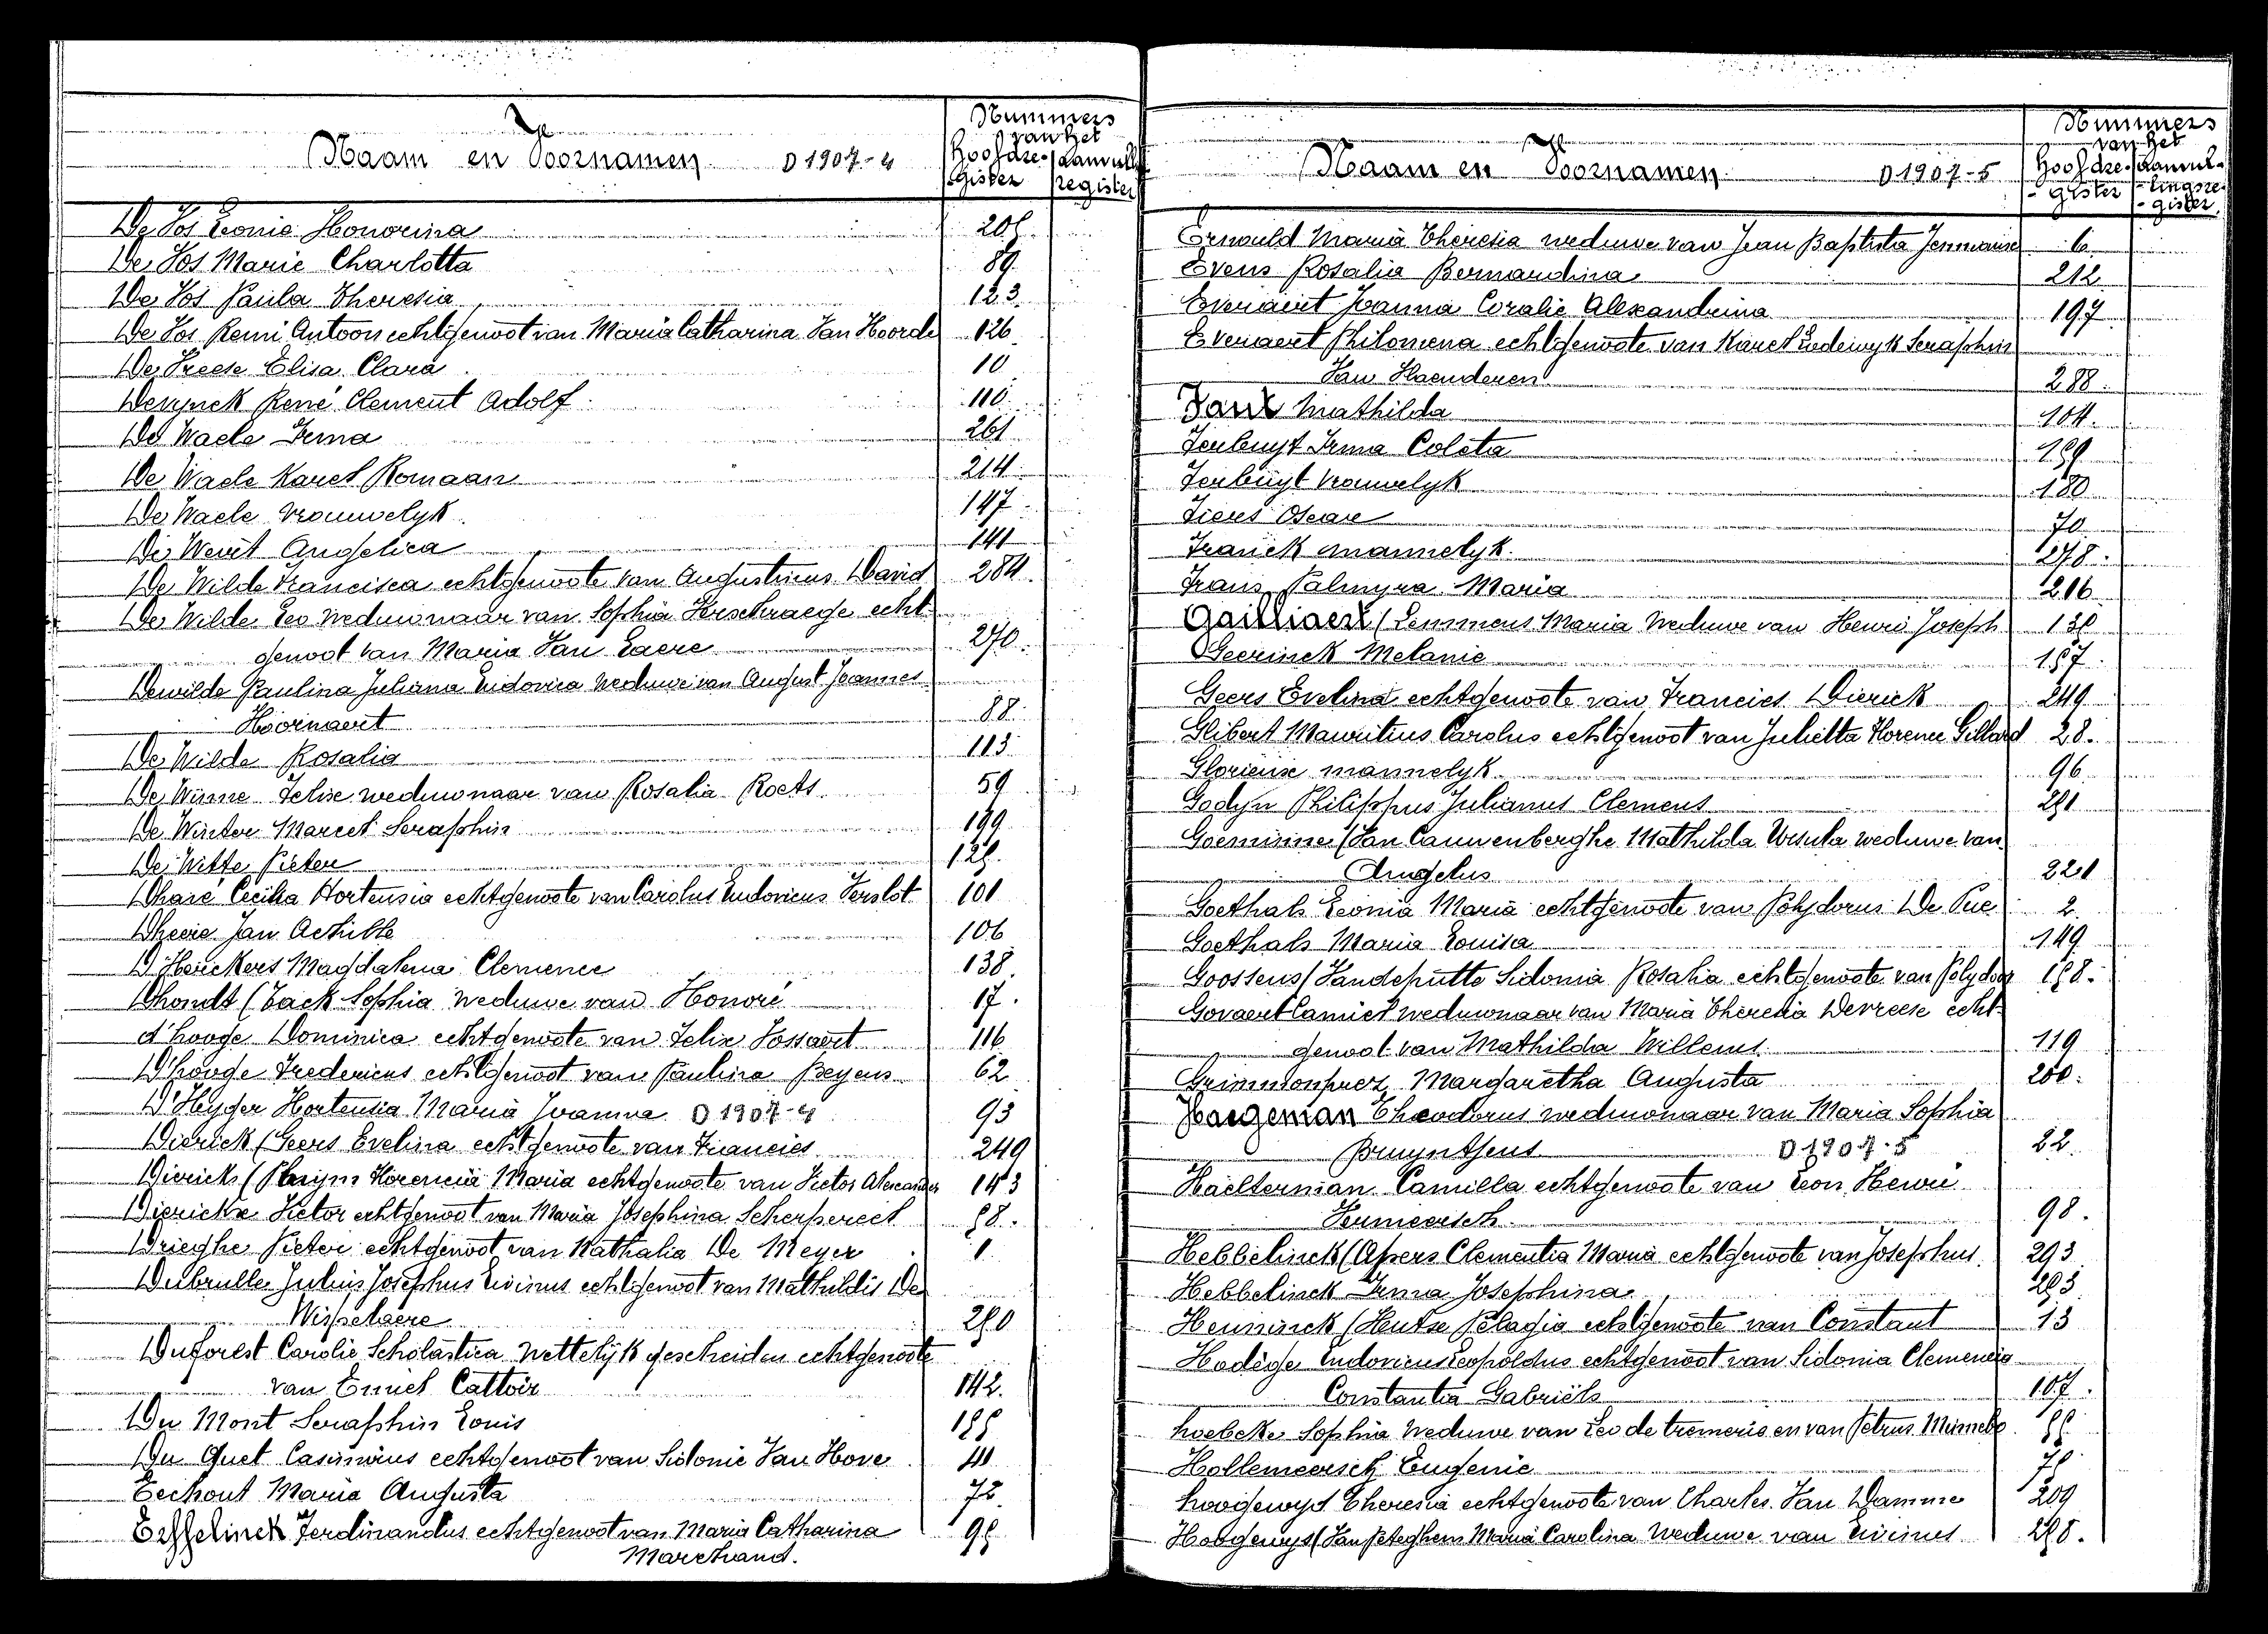 Naam en Voornamen D 1907-4
Nummers
van het
Hoofdre- / Aanvull
gister / register
De Vos Leonie Honorina
De Vos Marie Charlotta 89.
De Vos Paula Theresia 123.
De Vos Remi Antoon echtgenoot van Maria Catharina Van Hoorde 126.
De Vreese Elisa Clara 10
René Clement Adolf 110.
De Waele Irma 261
De Waele Karel Romaan 214.
De Waele vrouwelyk 147.
De Weert Angelica 141
De Wilde Francisca echtgenoote van Augustinus David 284.
De Wilde Leo weduwnaar van Sophia Verschraege echt-
genoot van Maria Van Laere 270.
Dewilde Paulina Juliana Ludovica weduwe van August Joannes
Hoornaert 88.
De Wilde Rosalia 113
De Winne Felise weduwnaar van Rosalia Roets 59
De Winter Marcel Seraphin 199
De Witte Pieter
Dharé Cecilia Hortensia echtgenoote van Carolus Ludovicus Verslot 101
Jan Achille 106
Magdalena Clemence 138.
Dhondt (Back Sophia weduwe van Honoré 17.
d'hooge Dominica echtgenoote van Felix Vossaert 116
D'hooge Fredericus echtgenoot van Paulina Beyens 62
D'Heyger Hortensia Maria Joanna D 1907-4 93
Dierick (Geers Evelina echtgenoote van Francies 249
Dierickx ( Florencia Maria echtgenoote van Victor Alexander 143
Dierickx Victor echtgenoot van Maria Josephina Scherpereel
Drieghe Pieter echtgenoot van Nathalia De Meyer 1.
Dubrulle Julius Josephus Livinus echtgenoot van Mathildis De
Wisselaere
Duforest Carolie Scholastica wettelijk gescheiden echtgenoote
van Emiel Cattoir 142.
Du Mont Seraphin Louis
Du Quet Casimirus echtgenoot van Sidonie Van Hove 41
Eeckout Maria Augusta 72.
Ferdinandus echtgenoot van Maria Catharina
Marchand.
Naam en Voornamen D 1907-5
Nummers
van het
Hoofdre- / Aanvul-
gister / lingsre-
gister
Maria Theresia weduwe van Jean Baptista 6.
Evens Rosalia Bernardina 212
Everaert Joanna Coralie Alexandrina 197
Everaert Philomena echtgenoote van Karel Lodewyk Seraphin
Van Haenderen 288.
Mathilda 104.
Irma Coleta
vrouwelyk 180
Oscar 70
Franck mannelyk. 278.
Frans Palmyra Maria 216
Gailliaert (Lemmens Maria weduwe van Henri Joseph
Geerinck Melanie 157.
Geers Evelina echtgenoote van Francies Dierick 249
Glibert Mauritius Carolus echtgenoot van Julietta Florence Gillard 28.
Glorieuse mannelyk 96
Godyn Philippus Julianus Clemens
Goeminne (Van Cauwenberghe Mathilda Ursula weduwe van
Angelus 221
Goethals Leonia Maria echtgenoote van Polydorus De Pue 2.
Goethals Maria Louisa 149
Goossens (Vandeputte Sidonia Rosalia echtgenoote van Polydoor
Govaert Camiel weduwnaar van Maria Theresia Devreese echt-
genoot van Mathilda Willems. 119
Margaretha Augusta
Haegeman Theodorus weduwnaar van Maria Sophia
D 1907-5 22.
Haelterman Camilla echtgenoote van Leon Henri
Vermeersch 98.
Hebbelinck (Aspers Clementia Maria echtgenoote van Josephus. 293
Hebbelinck Irma Josephina
(Hutse Pelagia echtgenoote van Constant 13
Ludovicus Leopoldus echtgenoot van Sidonia Clemencia
Constantia Gabriëls 107.
hoebeke Sophia weduwe van Leo de tremerie en van Petrus
Hollemeersch Eugenie
Theresia echtgenoote van Charles Van Damme 209
(Van Peteghem Maria Carolina weduwe van Livinus